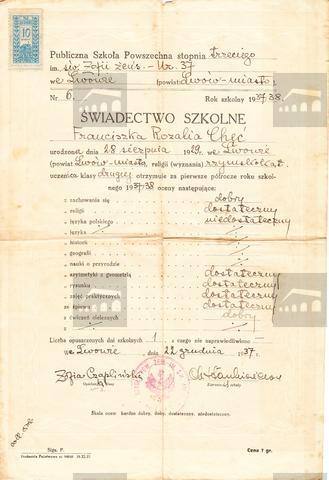 10
Publiczna Szkoła Powszechna stopnia trzeciego
im. św. Zofii żeńs. - Nr. 37
we Lwowie (powiat Lwów-miasto)
Nr 6. Rok szkolny 1937/38
ŚWIADECTWO SZKOLNE
Franciszka Rozalia Chęć
urodzona dnia 28 sierpnia 1929 we Lwowie
(powiat Lwów-miasto), religii (wyznania) rzymskokat.
uczenica klasy drugiej otrzymuje za pierwsze półrocze roku szkol-
nego 1937/38 oceny następujące:
z zachowania się dobry
z religii dostateczny
z języka polskiego niedostateczny
z języka
z historii
z geografii
z nauki o przyrodzie
z arytmetyki z geometrią dostateczny
z rysunku dostateczny
z zajęć praktycznych dostateczny
ze śpiewu dostateczny
z ćwiczeń cielesnych dobry
z języka
Liczba opuszczonych dni szkolnych 1 z czego nie usprawiedliwiono -
we Lwowie, dnia 22 grudnia 1937.
Zofia Czaplińska
Skala ocen: bardzo dobry, dobry, dostateczny, niedostateczny.
Sign. P.
Cena 7 gr.